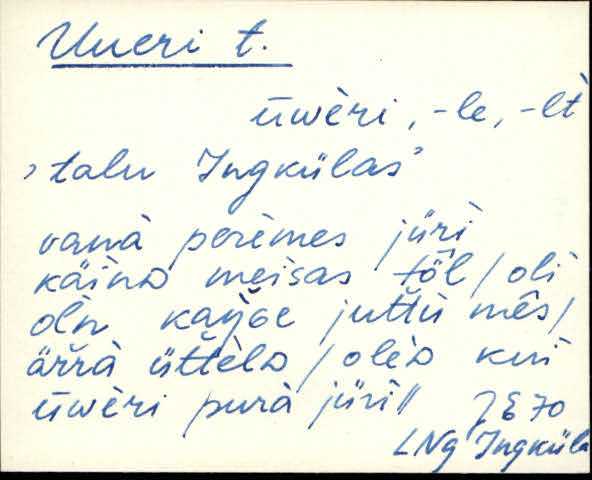 Uueri t.
ūwèri, -le, -lt̀
›talu Ingkülas›
vanà perèmes jüri
käinD meisas töl / oli
oln kaŋGe juttù mês /
ärrà üttèlD / olèD kui
ūwèri purà jüri //
LNg Ingküla